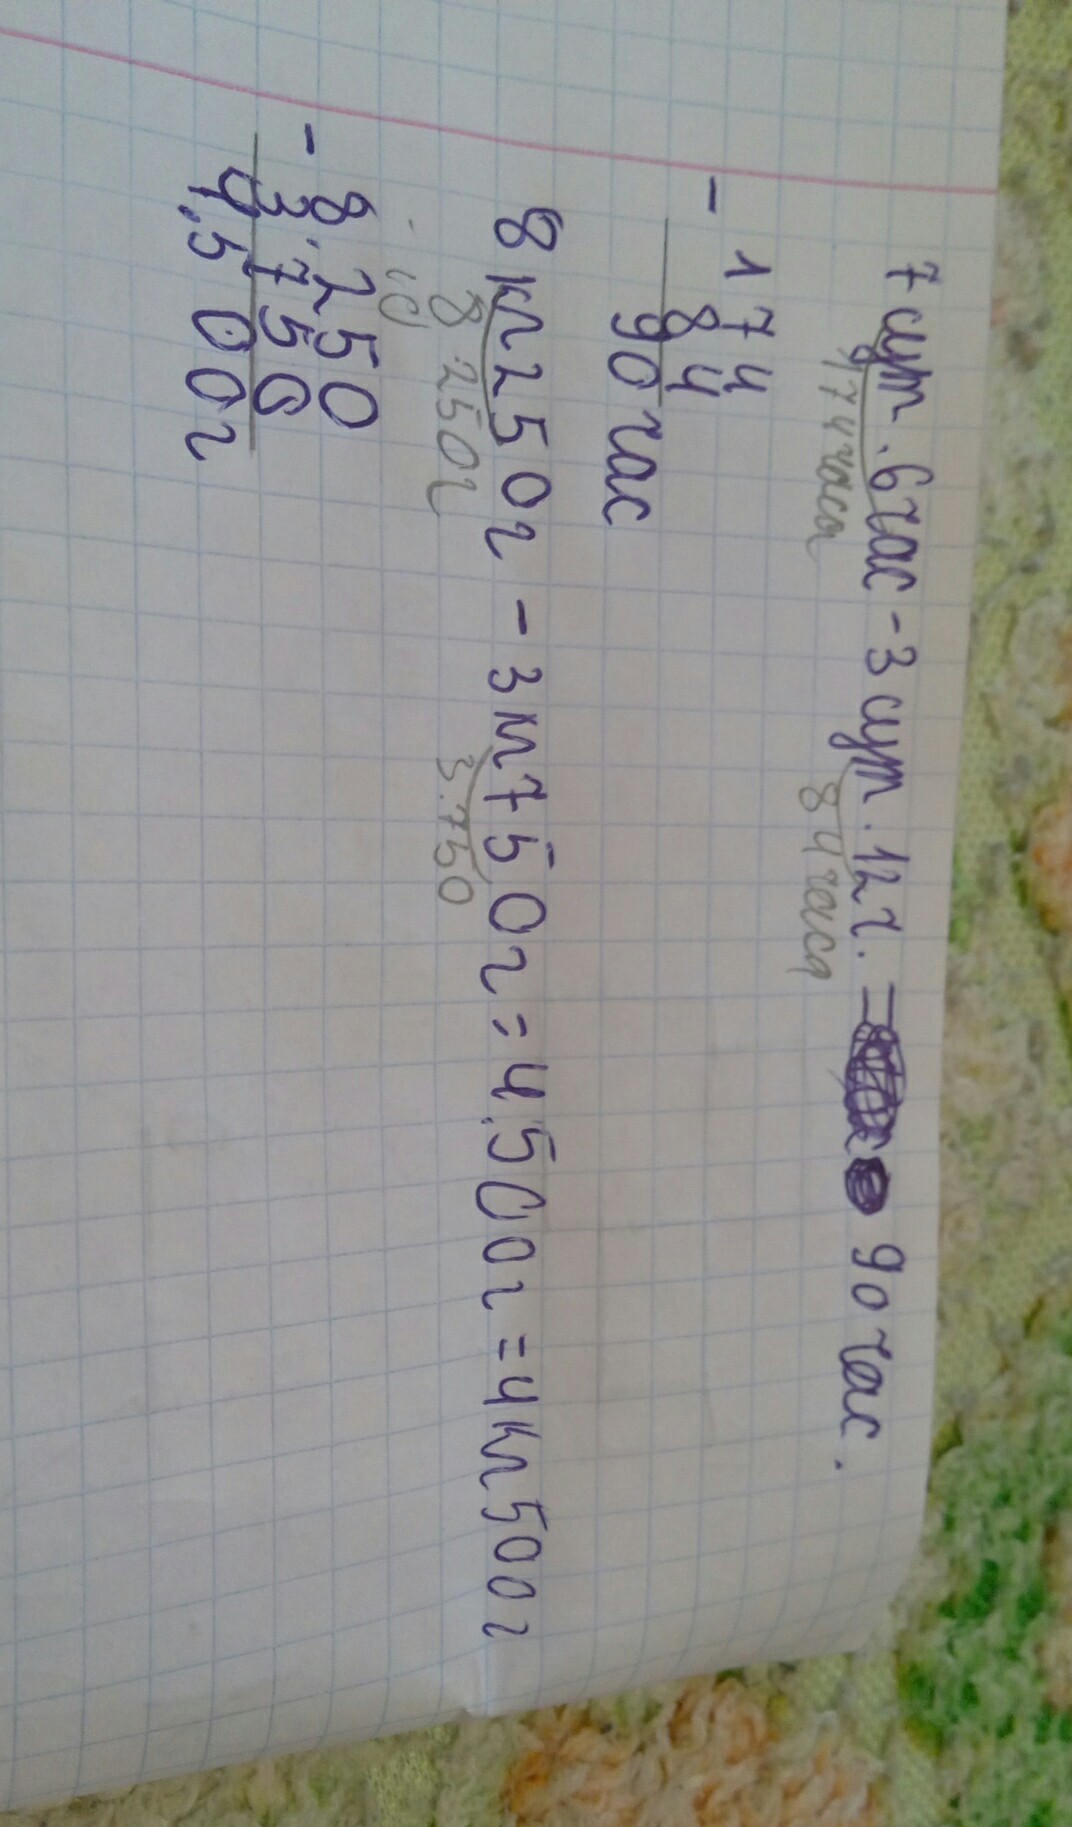 7 сут. 6 час - 3 сут. 12 ч. = 90 час.
174 часа 84 часа
- 174
84
90 час
8 кг 250 г - 3 кг 750 г = 4.500 г = 4 кг 500 г
8 250 г 3.750
10
- 8.250
3 750
4.500 г